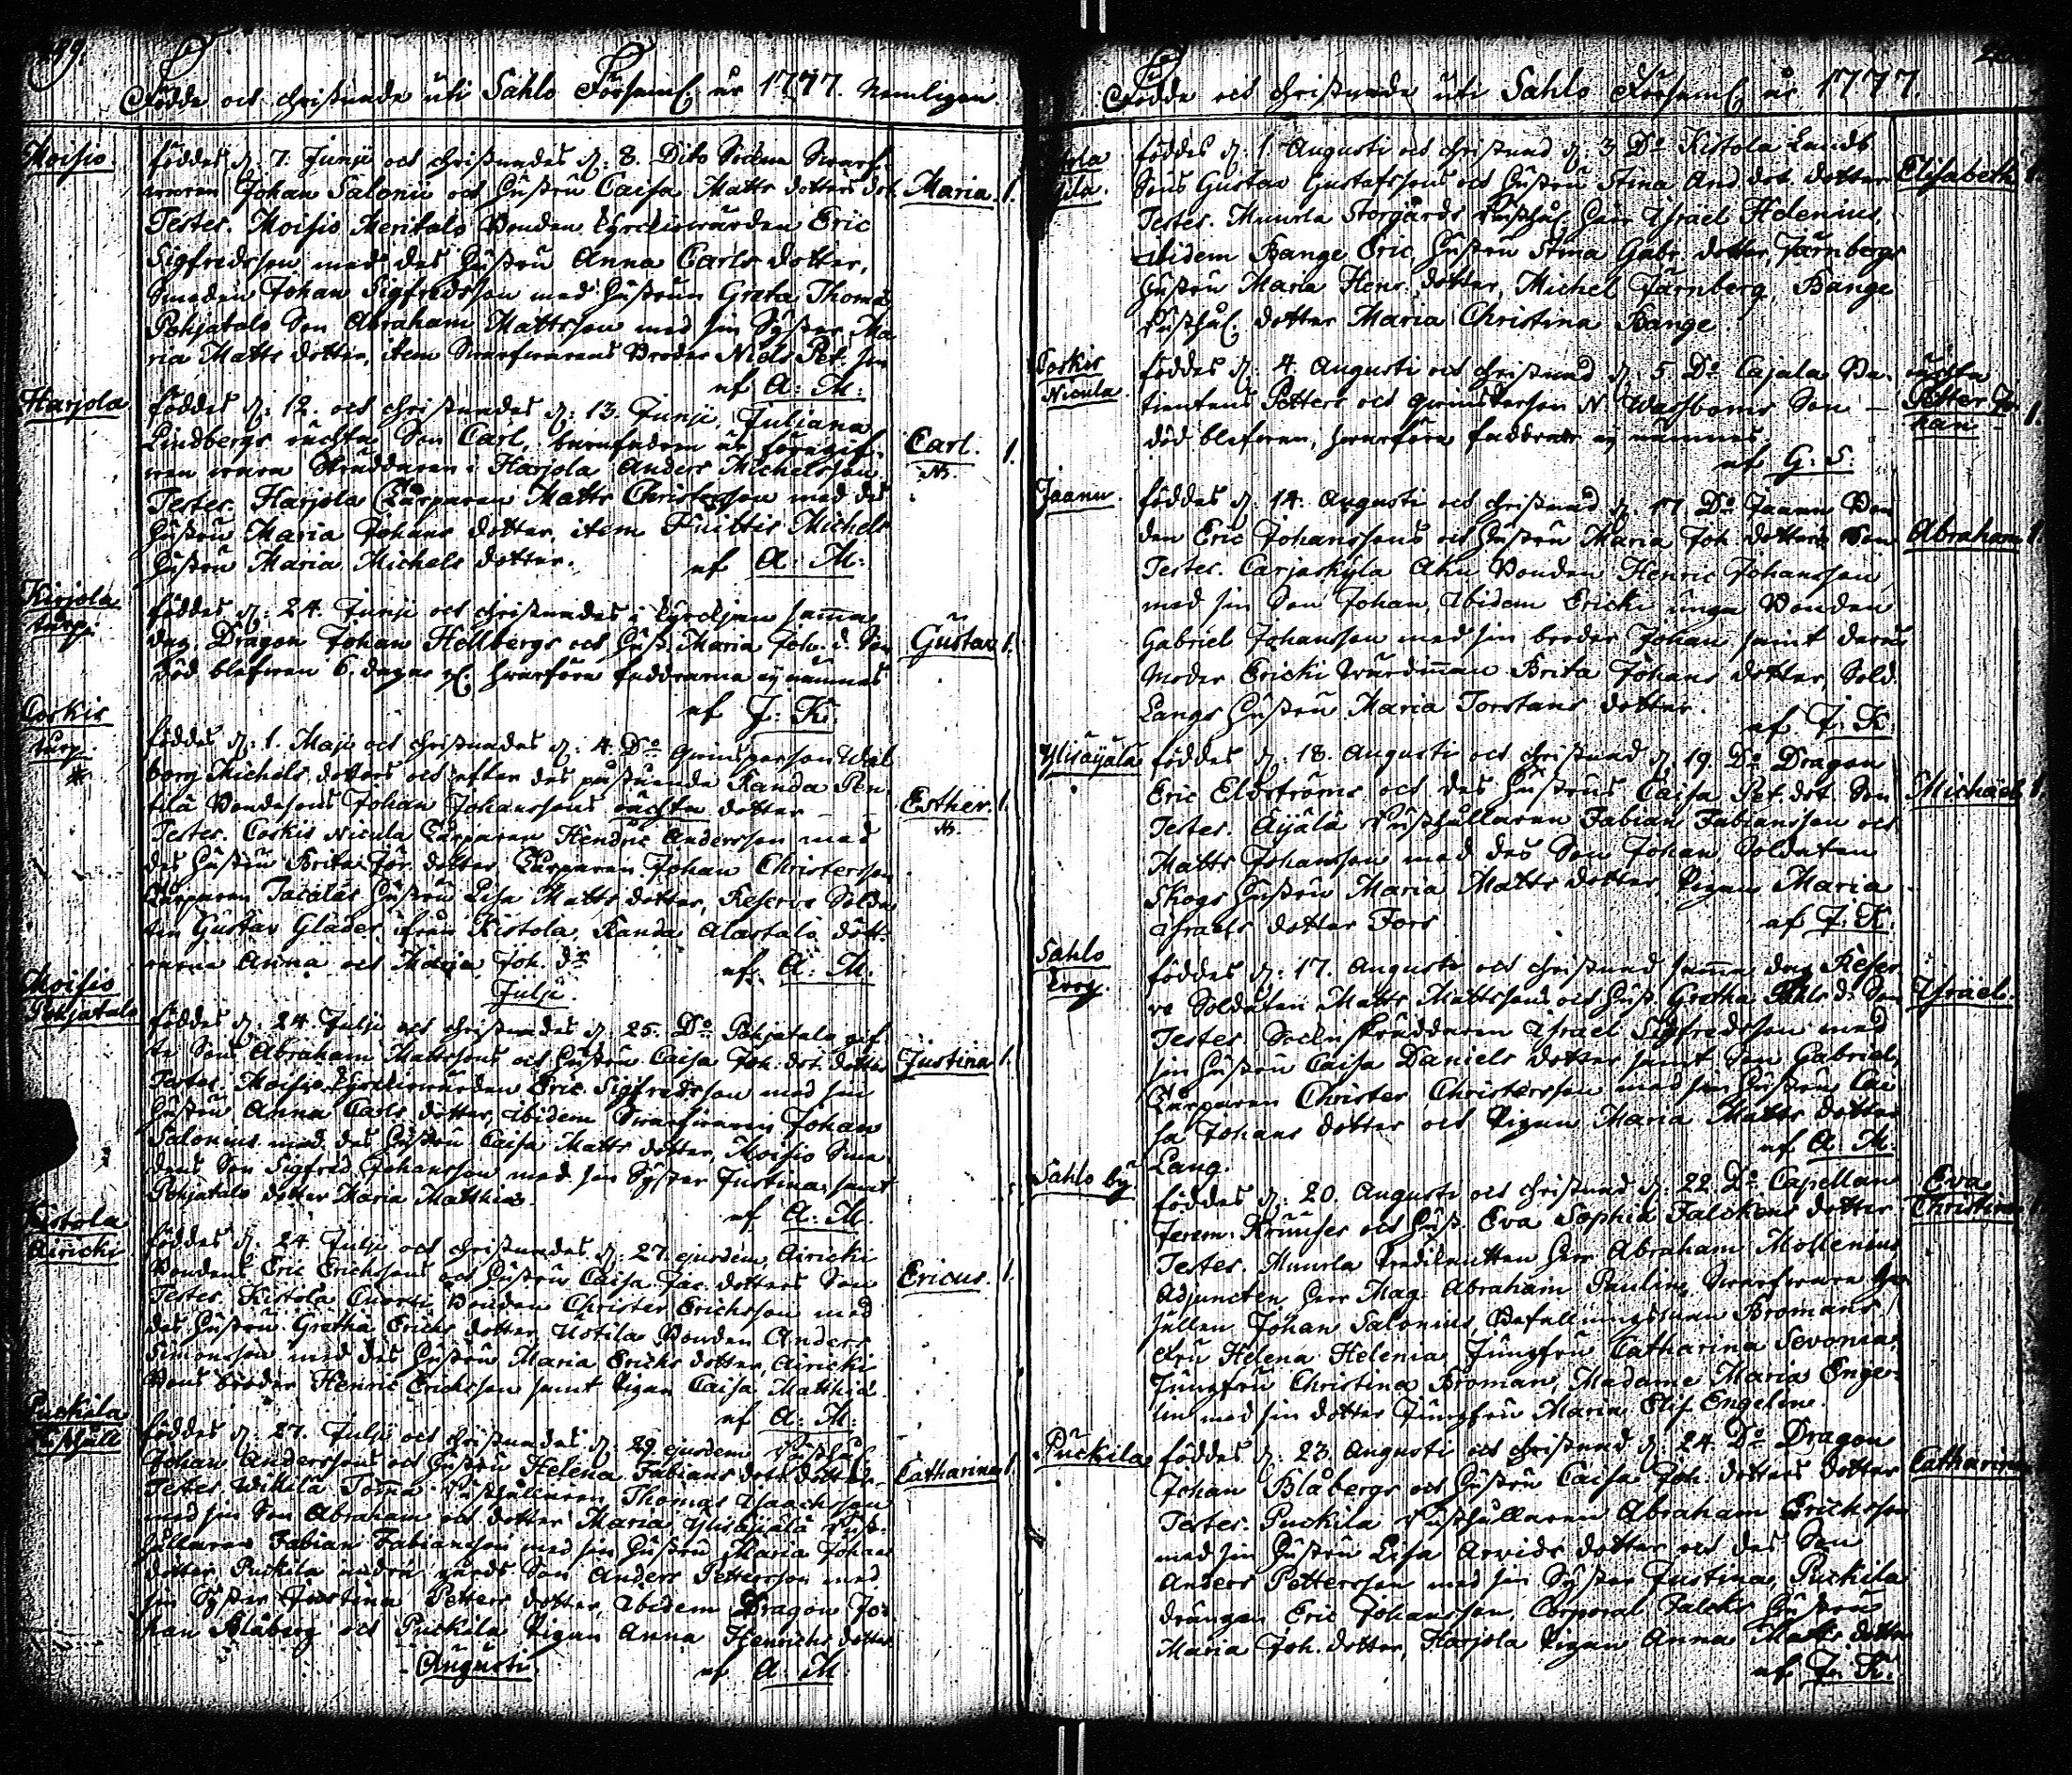 Födde och christnade uti Sahlo Församl. år 1777. Nemligen
Moisio. föddes d: 7. Junii och christnades d: 8. Dito Sockne Swarf-
waren Johan Saloni och hustru Caisa Matts dotters dot. Maria. 1.
Testes. Moisio Meritalo Bonden Kyrckiowärden Eric
Sigfredsson med des hustru Anna Carls dotter,
Smeden Johan Sigfredsson med hustrun Greta Thomæ
Pohjatalo Son Abraham Mattsson med sin Syster Ma
ria Matts dotter, item Swarfwarens Broder Niels Pet. son
af A: M:
Harjola föddes d: 12. och christnades d: 13. Junii, Juliana
Lindbergs oächta Son Carl, barnfadren är föregif- Carl. 1.
wen wara Skräddaren i Harjola Anders Michelsson NB.
Testes. Harjola Torparen Matts Christersson med des
hustru Maria Johans dotter, item Huittis Michels
hustru Maria Michels dotter. af A: M:
Kirjola torp. föddes d: 24. Junii och christnades i Kyrckjan samma
dag, Dragon Johan Hellbergs och hust. Maria Joh. d. Son Gustav 1.
död blefwen 6. dagar hwarföre faddrarna ej nämnas
af J: K:
Coskis torp. föddes d: 1. Maji och christnades d: 4. Do qwinsperson Wal
borg Michels dotters och efter des påstående Kanda Pen
tilä Bondesons Johan Johanssons oächta dotter Esther. 1.
Testes. Coskis Nicula Torparen Hendric Andersson med NB.
des hustru Brita Jör. dotter, Torparen Johan Christersson
Torparen Jacolas hustru Lisa Matts dotter, Reserve Solda
ten Gustav Glader ifrån Kistola, Kanda Alastalo dött-
rarna Anna och Maria Joh. dr af A: M:
Julii.
Moisio Pohjatalo föddes d: 24. Julii och christnades d: 25. Do Pohjatalo gif
te Son Abraham Mattssons och hustru Caisa Joh. dot. dotter Justina 1.
Testes. Moisio Kyrckiowärden Eric Sigfredsson med sin
hustru Anna Carls dotter, ibidem Swarfwaren Johan
Salonius med des hustru Caisa Matts dotter, Moisio Sme
dens Son Sigfred Johansson med sin Syster Justina, samt
Pohjatalo dotter Maria Matthiæ.
af A: M.
Kistola Airicki föddes d: 24. Julii och christnades d: 27. ejusdem, Airicki
Bondens Eric Erichssons och hustru Caisa Jac. dotters Son Ericus. 1.
Testes. Kistola Cuorti Bonden Christer Erichsson med
des hustru Gretha Erichs dotter, Uotila Bonden Anders
Simonsson med des hustru Maria Erichs dotter, Airicki
Bons broder Henric Erichsson samt Pigan Caisa Matthiæ
af A: M:
Puckila föddes d: 27. Julii och christnades d: 29. ejusdem Rusthål.
Johan Anderssons och hustru Helena Fabians dotr dotter Catharina 1.
Testes. Wihilä Torna Rusthållaren Thomas Isaachsson
med sin Son Abraham och dotter Maria, Yliskylä Rust-
hållaren Fabian Fabiansson med sin hustru Maria Johans
dotter, Puckila nedra gårds Son Anders Pettersson med
sin Syster Justina Petters dotter, ibidem Dragon Jo-
han Blåberg och Puckila Pigan Anna Henrichs dotter
Augusti. af A: M.
Födde och christnade uti Sahlo Församl. år 1777.
föddes d: 1. Augusti och christnad d: 3 Do Kistola Lands
Sons Gustav Gustafssons och hustru Stina And. dot. dotter Elisabeth 1.
Testes. Muurla Storgårds Rusthål. Herr Israel Helenius,
ibidem Bange Eric, hustru Stina Gabr. dotter, Järnbergs
hustru Maria Henr. dotter, Michel Järnberg, Bange
Rusthål. dotter Maria Christina Bange
Coskis Nicula. föddes d: 4. Augusti och christnad d: 5 Do Cajala Pa- oächta
tientens Petters och qwinsperson N Wassboms Son Petter Jo
död blefwen, hwarföre faddrar ej nämnes, han 1.
af G: S:
Jaanu. föddes d: 14. Augusti och christnad d: 17 Do Jaanu Bon
den Eric Johanssons och hustru Maria Joh dotters Son Abraham 1.
Testes. Carjaskyla Aku Bonden Henric Johansson
med sin Son Johan, ibidem Ericki unga Bonden
Gabriel Johansson med sin broder Johan samt deras
Moder Ericki Wärdinnan Brita Johans dotter, Sold.
Langs hustru Maria Torstans dotter.
af J: K:
föddes d: 18. Augusti och christnad d: 19. Do Dragon
Eric Eldströms och des hustrus Caisa Pet. dot. Son Michaël 1.
Testes. Äijälä Rusthållaren Fabian Fabiansson och
Matts Johansson med des Son Johan, Soldaten
Skogs hustru Maria Matts dotter, Pigan Maria
Israels dotter Fors. af J: K.
Sahlo föddes d: 17. Augusti och christnad samma dag Reser
ve Soldaten Matts Mattssons och hust. Gretha Påhls d. Son Israel.
Testes. Sockn skräddaren Israel Sigfredsson med
sin hustru Caisa Daniels dotter samt Son Gabriel,
Torparen Christer Christersson med sin hustru Cai
sa Johans dotter och Pigan Maria Matts dotter
Lang. af A: M:
Sahlo by föddes d: 20. Augusti och christnad d: 22. Do Capellan Eva
Jerem. Kruuses och hust. Eva Sophia Falckens dotter Christina 1.
Testes. Muurla Predikanten Herr Abraham Mollenius
Adjuncten Herr Mag. Abraham Paulin, Swarfware Ge-
sällen Johan Salonius, Befallningsman Bromans
Fru Helena Helenia, Jungfru Catharina Sevonia,
Jungfru Christina Broman, Madame Maria Enge-
lin med sin dotter Jungfru Maria Elis. Engelin.
Puckila föddes d: 23. Augusti och christnad d: 24. Do Dragon
Johan Blåbergs och hustru Caisa Joh. dotters dotter Catharina
Testes. Puckila Rusthållaren Abraham Erichsson
med sin hustru Lisa Arvids dotter och des Son
Anders Pettersson med sin Syster Justina, Puckila
drängen Eric Johansson, Corporal Falcks hustru
Maria Joh. dotter, Harjola Pigan Anna Matts dotter
af J: K.